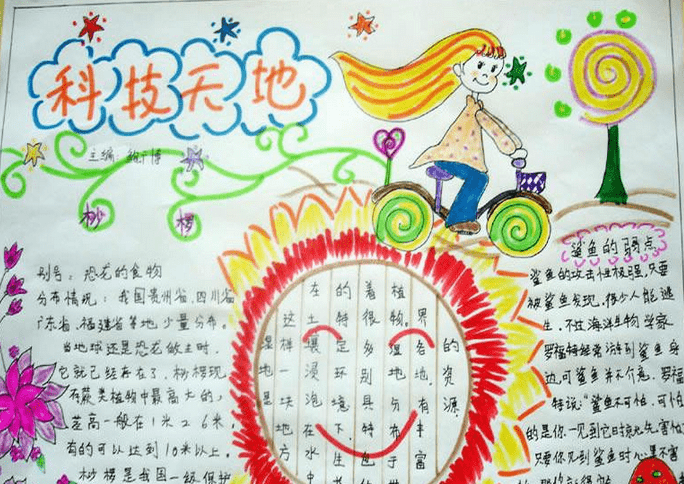 科技天地
主编：
桫椤
别号：恐龙的食物
分布情况：我国贵州省、四川省
广东省、福建省等地，少量分布。
当地球还是恐龙做主时，
它就已经存在了，桫椤现
存蕨类植物中最高大的，
茎高一般在1米26米，
有的可以达到10米以上。
桫椤是我国一级保护
湿地是
这样一块地方
在土壤浸泡在水中
的特定环境下生
着很多别具特色
植物。湿地分布于
界各地。有丰富
的资源
鲨鱼的弱点
鲨鱼的攻击性极强，只要
被鲨鱼发现，很少人能逃
生。不过海洋生物学家
罗福特经常游到鲨鱼身
边，可鲨鱼并不介意。罗福
特说：“鲨鱼不可怕，可怕
的是你一见到它时就先害怕
只要你见到鲨鱼时心里不害